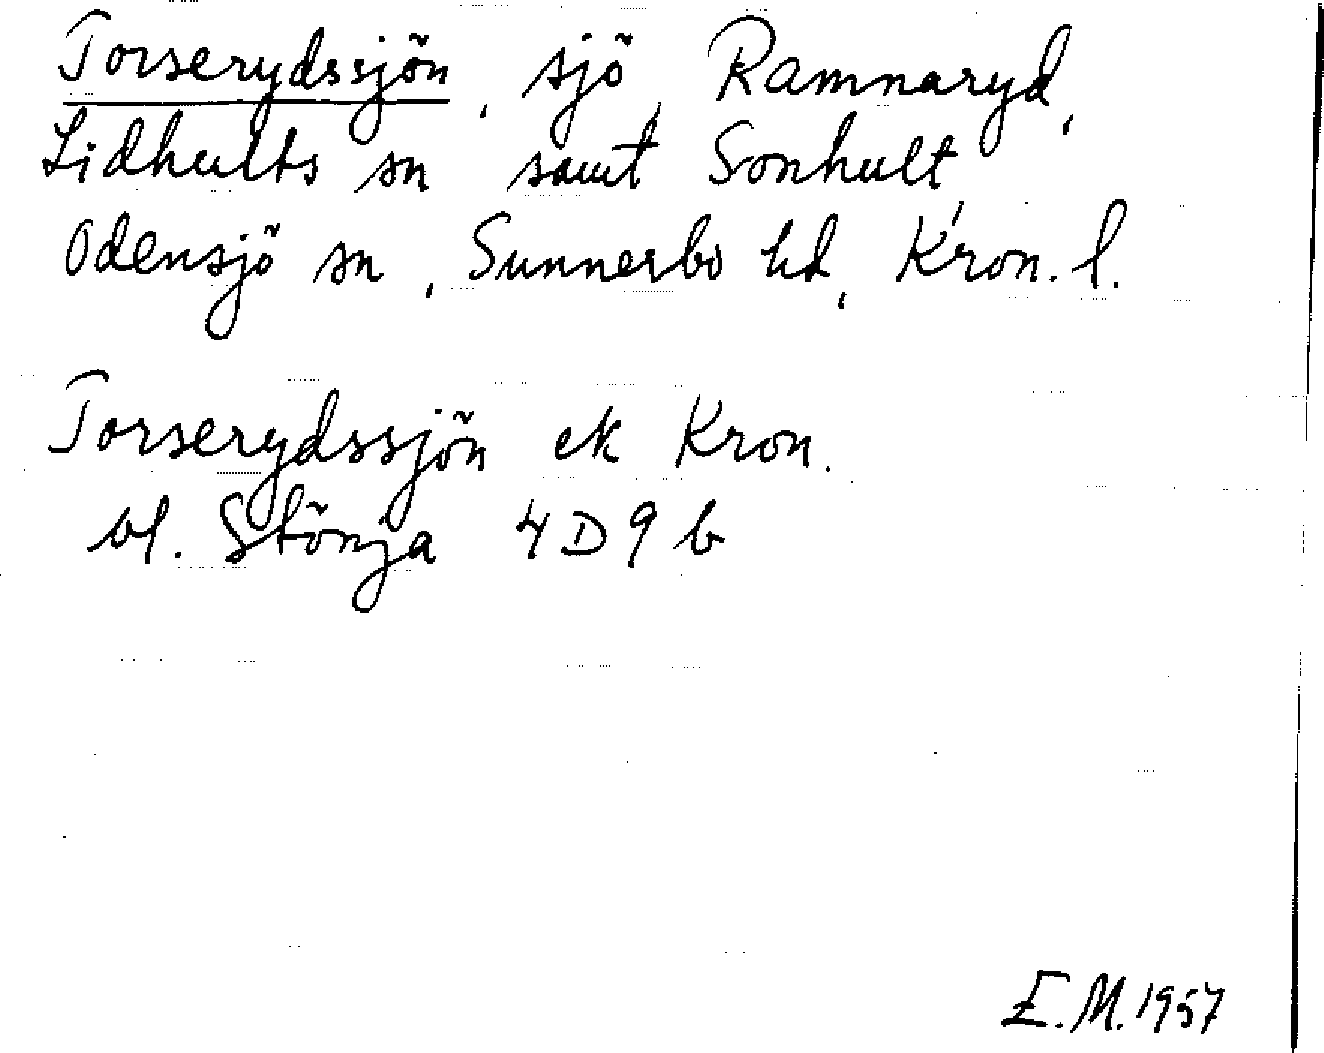 Torserydssjön, sjö, Ramnaryd,
Lidhults sn samt Sonhult,
Odensjö sn, Sunnerbo hd, Kron. l.
Torserydssjön ek Kron.
bl. Stönja 4D9b
E.M. 1957